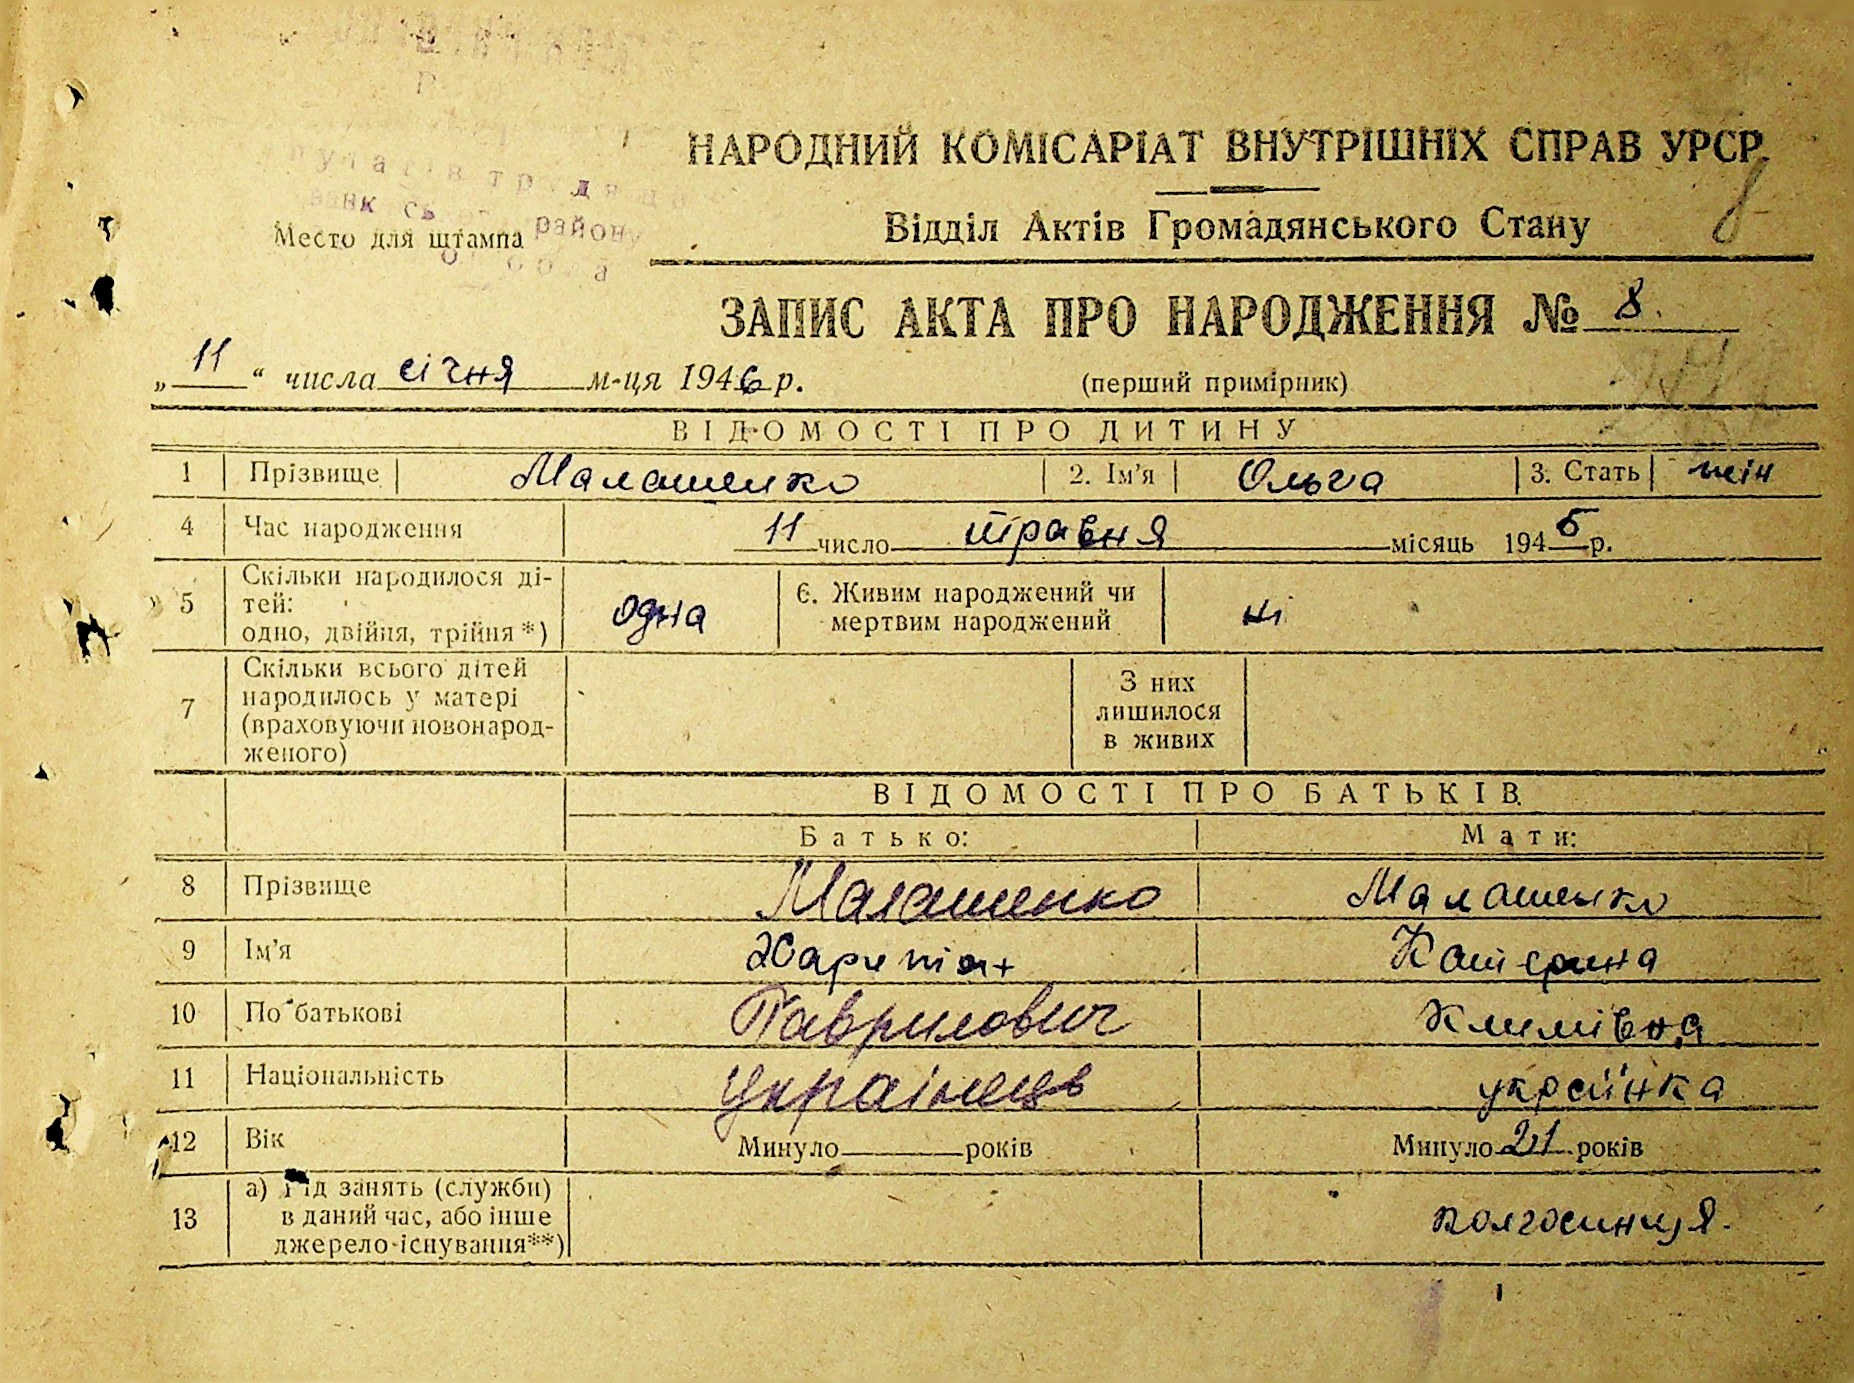 НАРОДНИЙ КОМІСАРІАТ ВНУТРІШНІХ СПРАВ УРСР
району
Место для штампа
Відділ Актів Громадянського Стану
ЗАПИС АКТА ПРО НАРОДЖЕННЯ № 8.
„ 11 “ числа січня м-ця 1946 р.
(перший примірник)
ВІДОМОСТІ ПРО ДИТИНУ
1 Прізвище Малашенко 2. Ім'я Ольга 3. Стать жін
4 Час народження 11 число травня місяць 1945 р.
5 Скільки народилося ді-
тей:
одно, двійня, трійня*) одна
6. Живим народжений чи
мертвим народжений ні
7 Скільки всього дітей
народилось у матері
(враховуючи новонарод-
женого)
З них
лишилося
в живих
ВІДОМОСТІ ПРО БАТЬКІВ
Батько: Мати:
8 Прізвище Малашенко Малашенко
9 Ім'я Харитон Катерина
10 По батькові Гаврилович Климівна
11 Національність Українець українка
12 Вік Минуло років Минуло 21 років
13 а) Рід занять (служби)
в даний час, або інше
джерело існування**) колгоспниця.